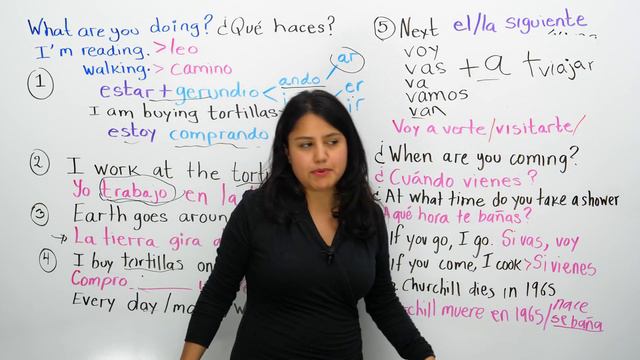 What are you doing? ¿Qué haces?
I'm reading. > leo
walking. > camino
① estar + gerundio < ando ar
er
ir
I am buying tortillas
estoy comprando
② I work at the
Yo trabajo en
③ Earth goes
→ La tierra gira
④ I buy tortillas
Compro
Every day /
⑤ Next el/la siguiente
voy
vas + a + viajar
va
vamos
van
Voy a verte/visitarte/
¿When are you coming?
¿Cuándo vienes?
¿At what time do you take a shower
A qué hora te bañas?
If you go, I go. Si vas, voy
If you come, I cook > Si vienes
Churchill dies in 1965
muere en 1965/ nace
se baña